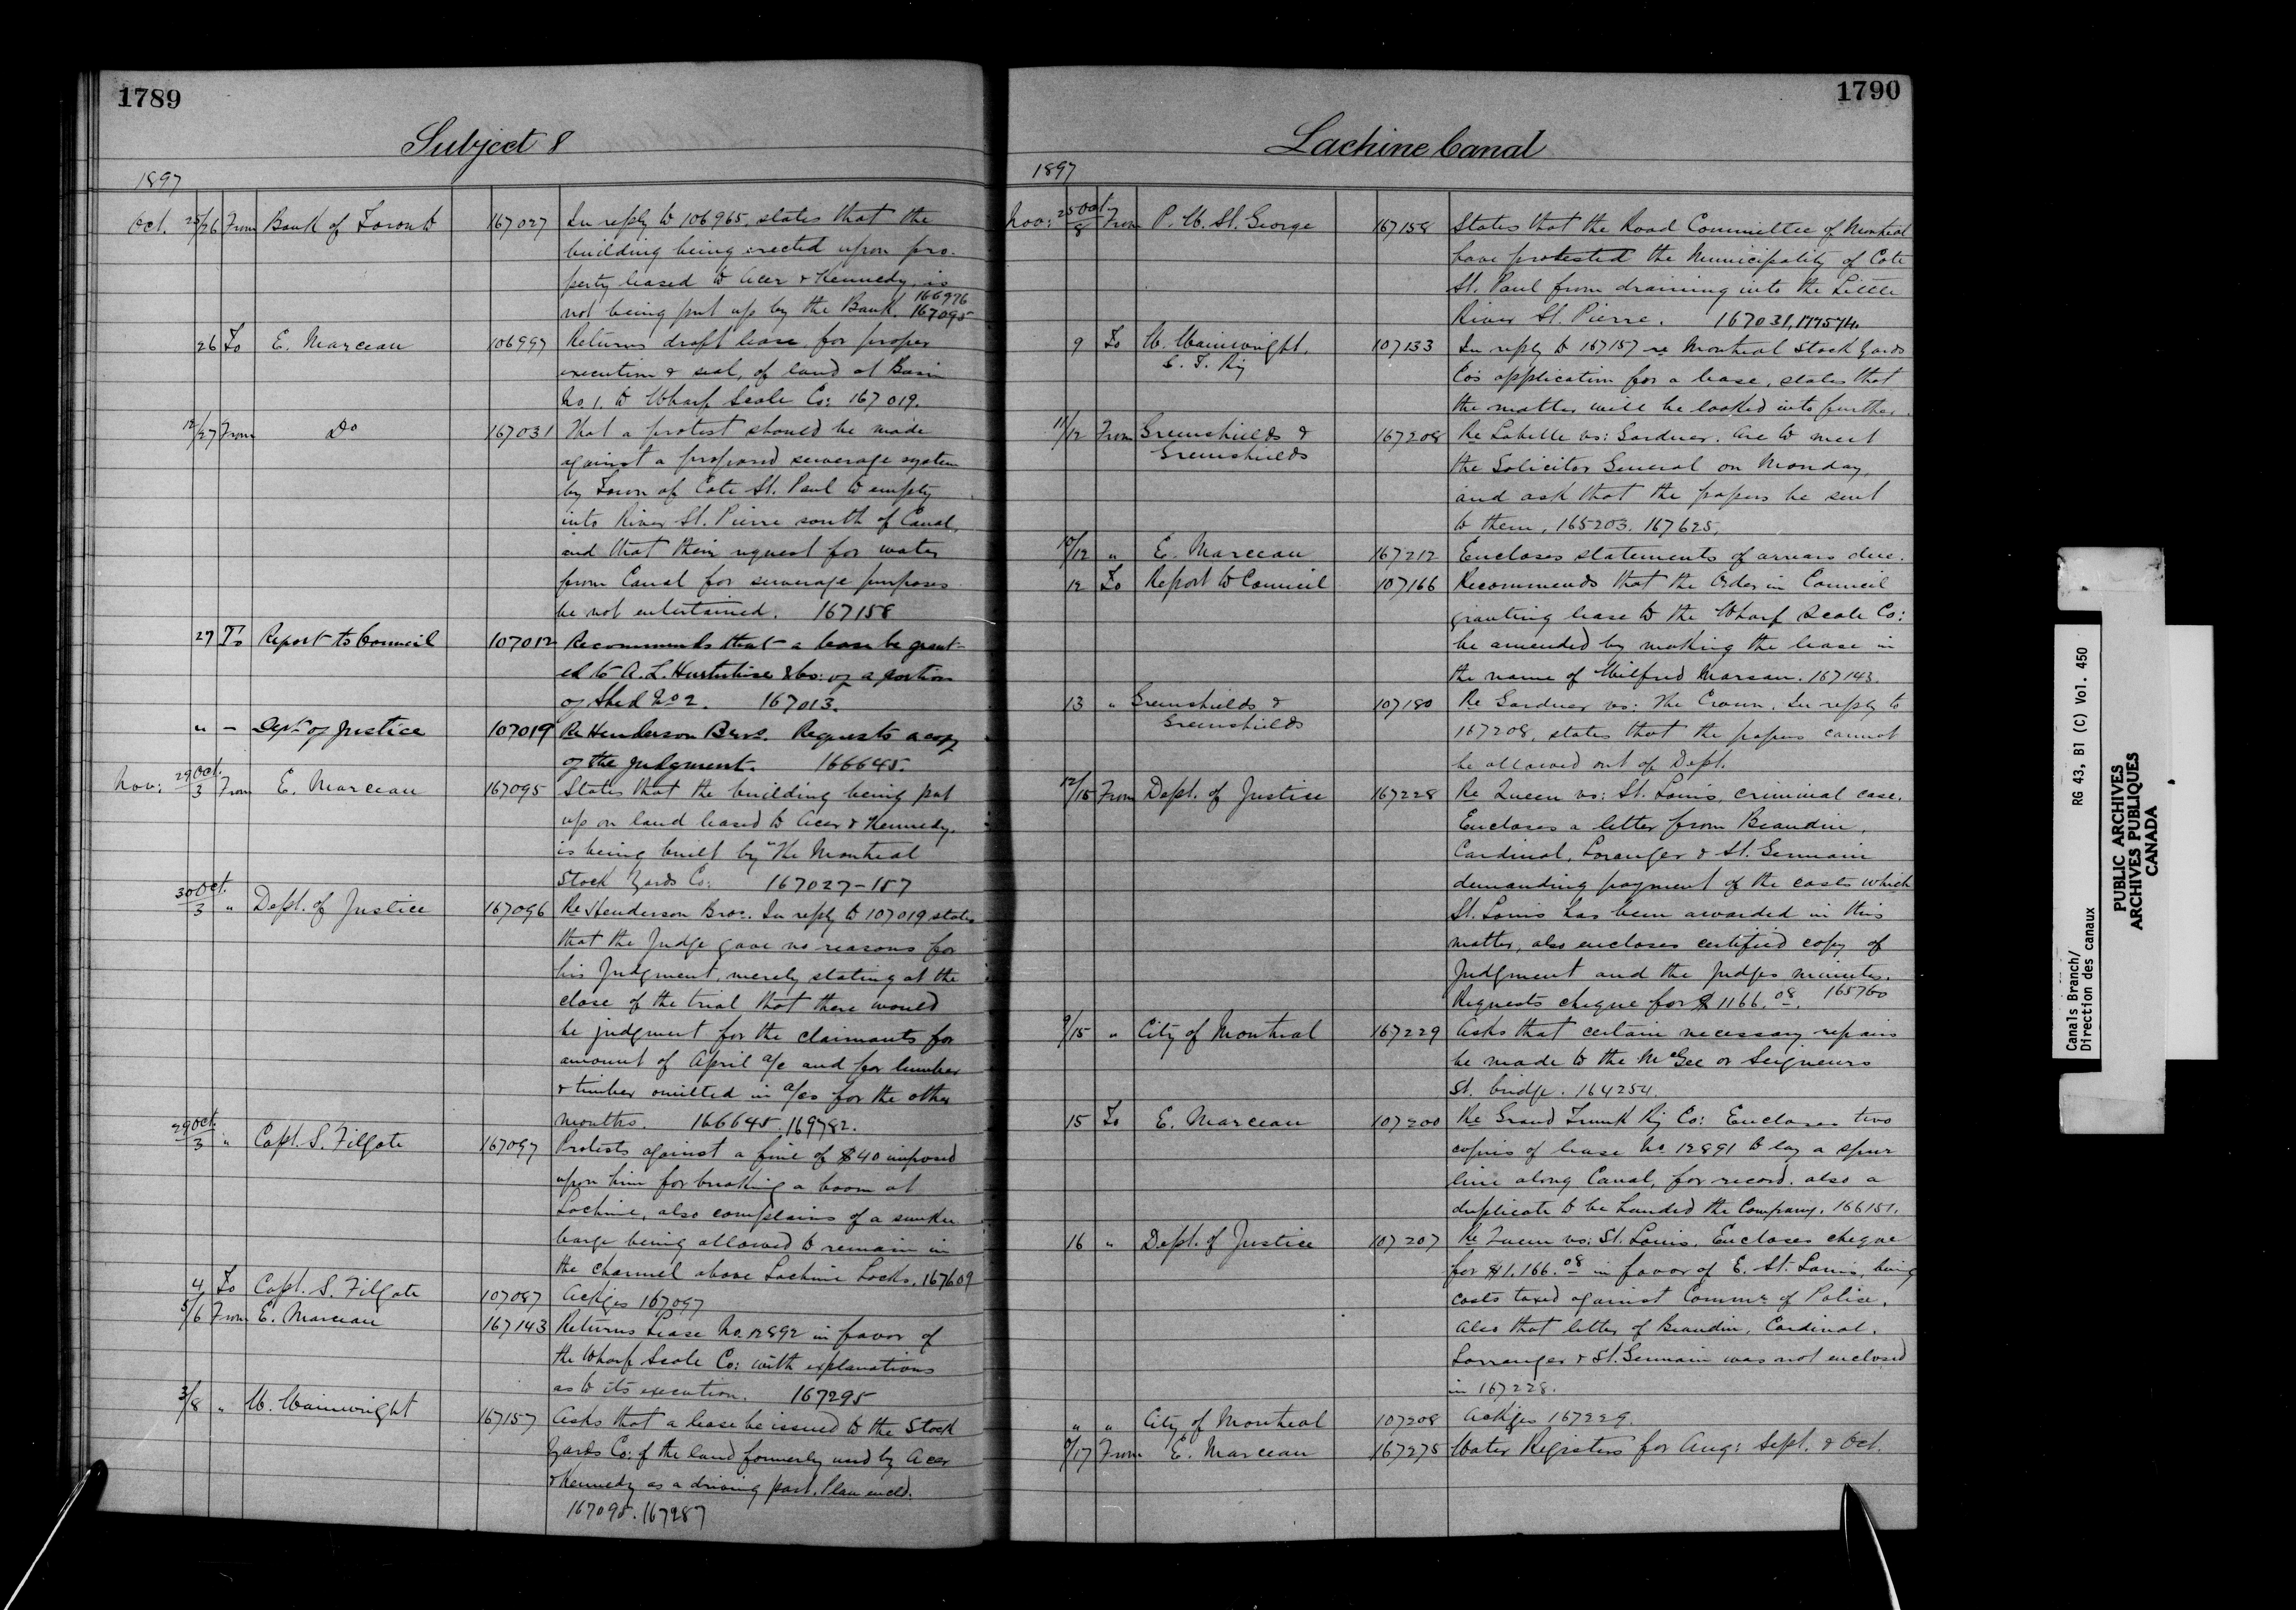 1789
Subject 8
1897
Oct. 25/26 From Bank of Toronto 167027 In reply to 106965, states that the
building being erected upon pro-
perty leased to Acer & Kennedy, is
not being put up by the Bank. 166976 167095
26 To E. Marceau 106997 Returns draft lease, for proper
execution & seal, of land at Basin
No. 1. to Wharf Scale Co: 167019.
12/27 From Do 167031 That a protest should be made
against a proposed sewerage system
by Town of Cote St. Paul to empty
into River St. Pierre south of Canal,
and that their request for water
from Canal for sewerage purposes
be not entertained. 167158
27 To Report to Council 107012 Recommends that a lease be grant-
ed to A. L. Hurtubise & Co: of a portion
of Shed No 2. 167013.
" - Dept. of Justice 107019 Re Henderson Bros. Requests a copy
of the judgment. 166645.
Nov: 29 Oct./3 From E. Marceau 167095 States that the building being put
up on land leased to Acer & Kennedy,
is being built by "The Montreal
Stock Yards Co: 167027-157
30 Oct./3 " Dept. of Justice 167096 Re Henderson Bros. In reply to 107019 states
that the Judge gave no reasons for
his Judgment, merely stating at the
close of the trial that there would
be judgment for the claimants for
amount of April a/c and for lumber
& timber omitted in a/cs for the other
months. 166645. 169782.
29 Oct./3 " Capt. S. Filgate 167097 Protests against a fine of $40 imposed
upon him for breaking a boom at
Lachine, also complains of a sunken
barge being allowed to remain in
the channel above Lachine Locks. 167609
4 To Capt. S. Filgate 107087 Ackges 167097
5/6 From E. Marceau 167143 Returns Lease No. 12892 in favor of
the Wharf Scale Co: with explanations
as to its execution. 167295
3/8 " W. Wainwright 167157 Asks that a lease be issued to the Stock
Yards Co: of the land formerly used by Acer
& Kennedy as a driving part. Plan encld.
167095. 167287
1790
Lachine Canal
1897
Nov: 25 Oct./8 From P. W. St. George 167158 States that the Road Committee of Montreal
have protested the Municipality of Cote
St. Paul from draining into the Little
River St. Pierre. 167031, 177574.
9 To W. Wainwright, 107133 In reply to 167157 re Montreal Stock Yards
G. T. Ry Co's application for a lease, states that
the matter will be looked into further.
11/12 From Greenshields & 167208 Re Labelle vs: Gardner. Are to meet
Greenshields the Solicitor General on Monday,
and ask that the papers be sent
to them, 165203. 167625.
10/12 " E. Marceau 167212 Encloses statements of arrears due.
12 To Report to Council 107166 Recommends that the Order in Council
granting lease to the Wharf Scale Co:
be amended by making the lease in
the name of Wilfred Marsan. 167143.
13 " Greenshields & 107180 Re Gardner vs: The Crown. In reply to
Greenshields 167208, states that the papers cannot
be allowed out of Dept.
12/15 From Dept. of Justice 167228 Re Queen vs: St. Louis, criminal case.
Encloses a letter from Beaudin,
Cardinal, Loranger & St. Germain
demanding payment of the costs which
St. Louis has been awarded in this
matter, also encloses certified copy of
Judgment and the Judges minutes.
Requests cheque for $1166.08. 165760
9/15 " City of Montreal 167229 Asks that certain necessary repairs
be made to the McGee or Seigneurs
St. bridge. 164254.
15 To E. Marceau 107200 Re Grand Trunk Ry Co: Encloses two
copies of lease No. 12891 to lay a spur
line along Canal, for record. also a
duplicate to be handed the Company. 166151.
16 " Dept. of Justice 107207 Re Queen vs: St. Louis. Encloses cheque
for $1,166.08 in favor of E. St. Louis, being
costs taxed against Commr. of Police.
Also that letter of Beaudin, Cardinal,
Lorranger & St. Germain was not enclosed
in 167228.
" " City of Montreal 107208 Ackges 167229.
/17 From E. Marceau 167275 Water Registers for Aug: Sept. & Oct.
Canals Branch/
Direction des canaux
RG 43, B1 (C) Vol. 450
PUBLIC ARCHIVES
ARCHIVES PUBLIQUES
CANADA